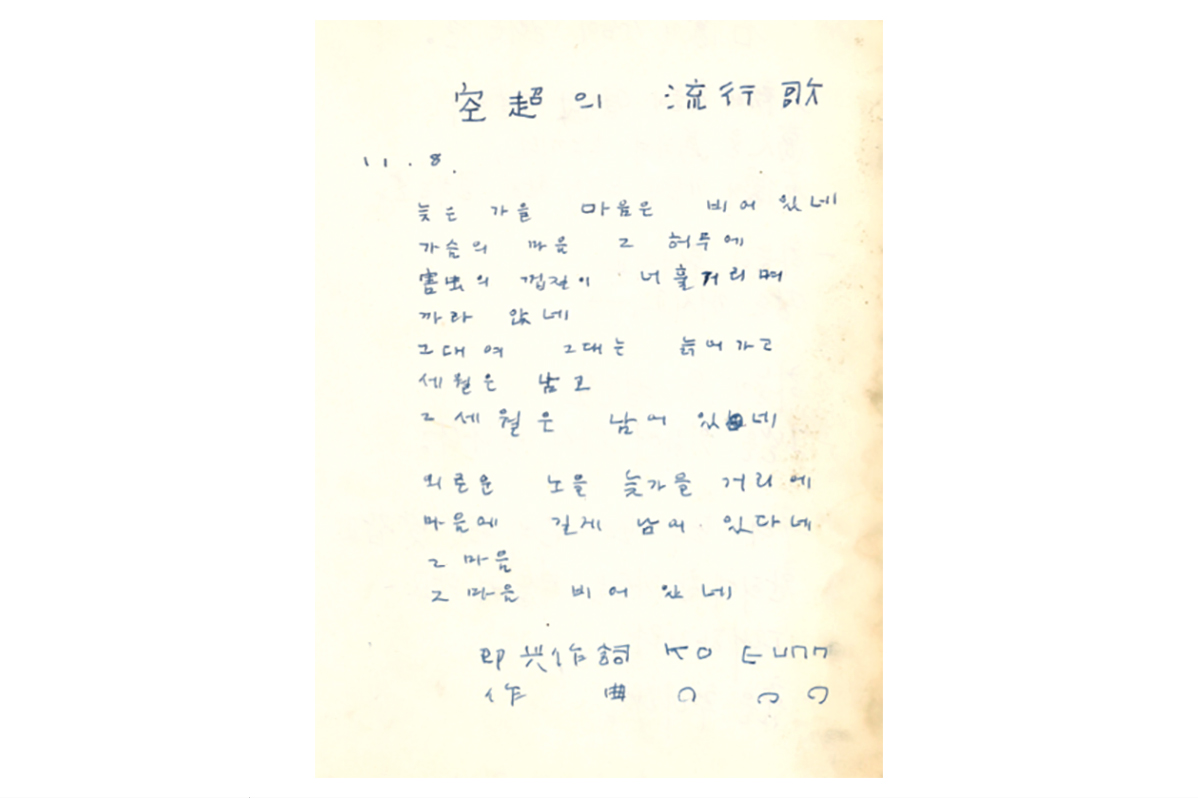 空超의 流行歌
11.8.
늦은 가을 마음은 비어 있네
가슴의 마음 그 허무에
害虫의 껍질이 너훌거리며
까라 앉네
그대여 그대는 늙어가고
세월은 남고
그 세월은 남어 있네
외론운 노을 늦가을 거리에
마음에 길게 남어 있다네
그 마음
그 마음 비어 있네
即興作詞 KO EUNN
作 曲